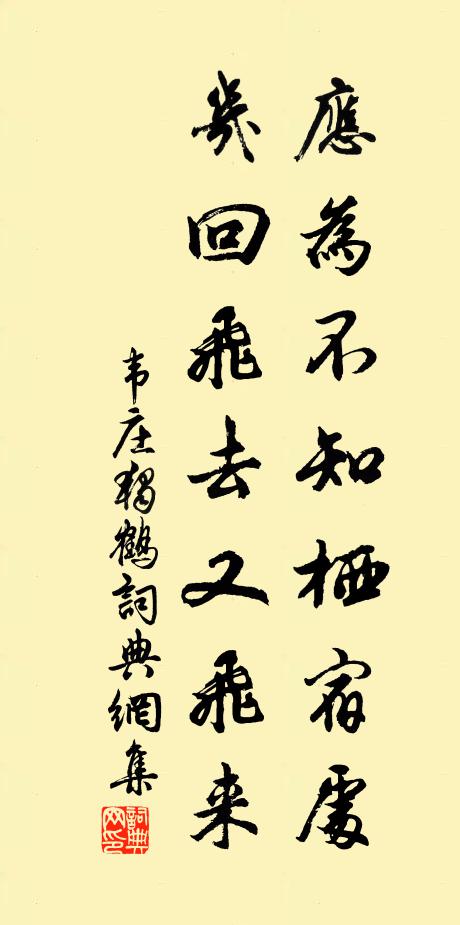 應為不知栖宿處
幾回飛去又飛来
韦庄独鶴詞典網集
詞典网印